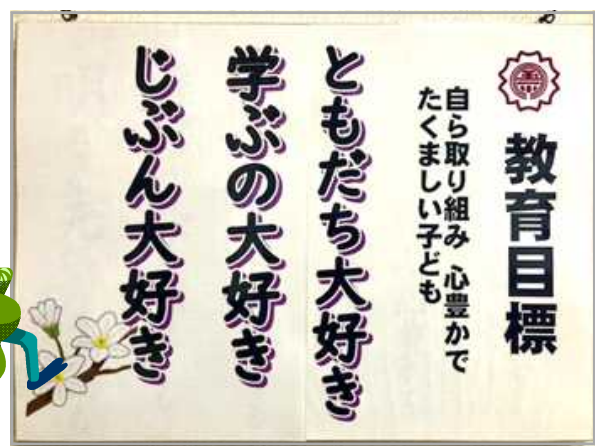 教育目標
自ら取り組み 心豊かで
たくましい子ども
ともだち大好き
学ぶの大好き
じぶん大好き